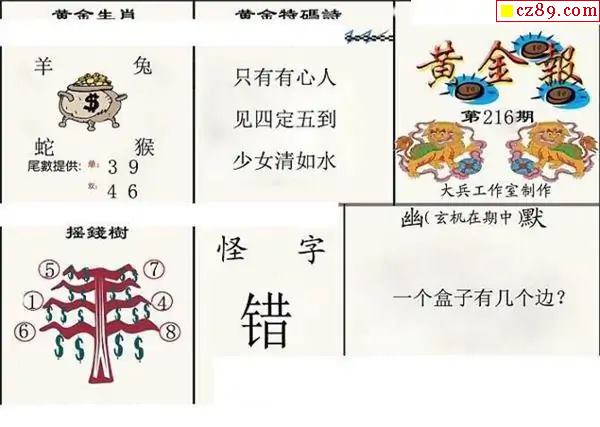 cz89.com
黄金生肖
羊 兔
$
蛇 猴
尾數提供: 单: 3 9
双: 4 6
黄金特碼詩
只有有心人
见四定五到
少女清如水
黄金報
第216期
大兵工作室制作
摇錢樹
⑤ ⑦
① ④
⑥ ⑧
$ $ $ $ $ $ $ $
怪 字
错
幽(玄机在期中)默
一个盒子有几个边？